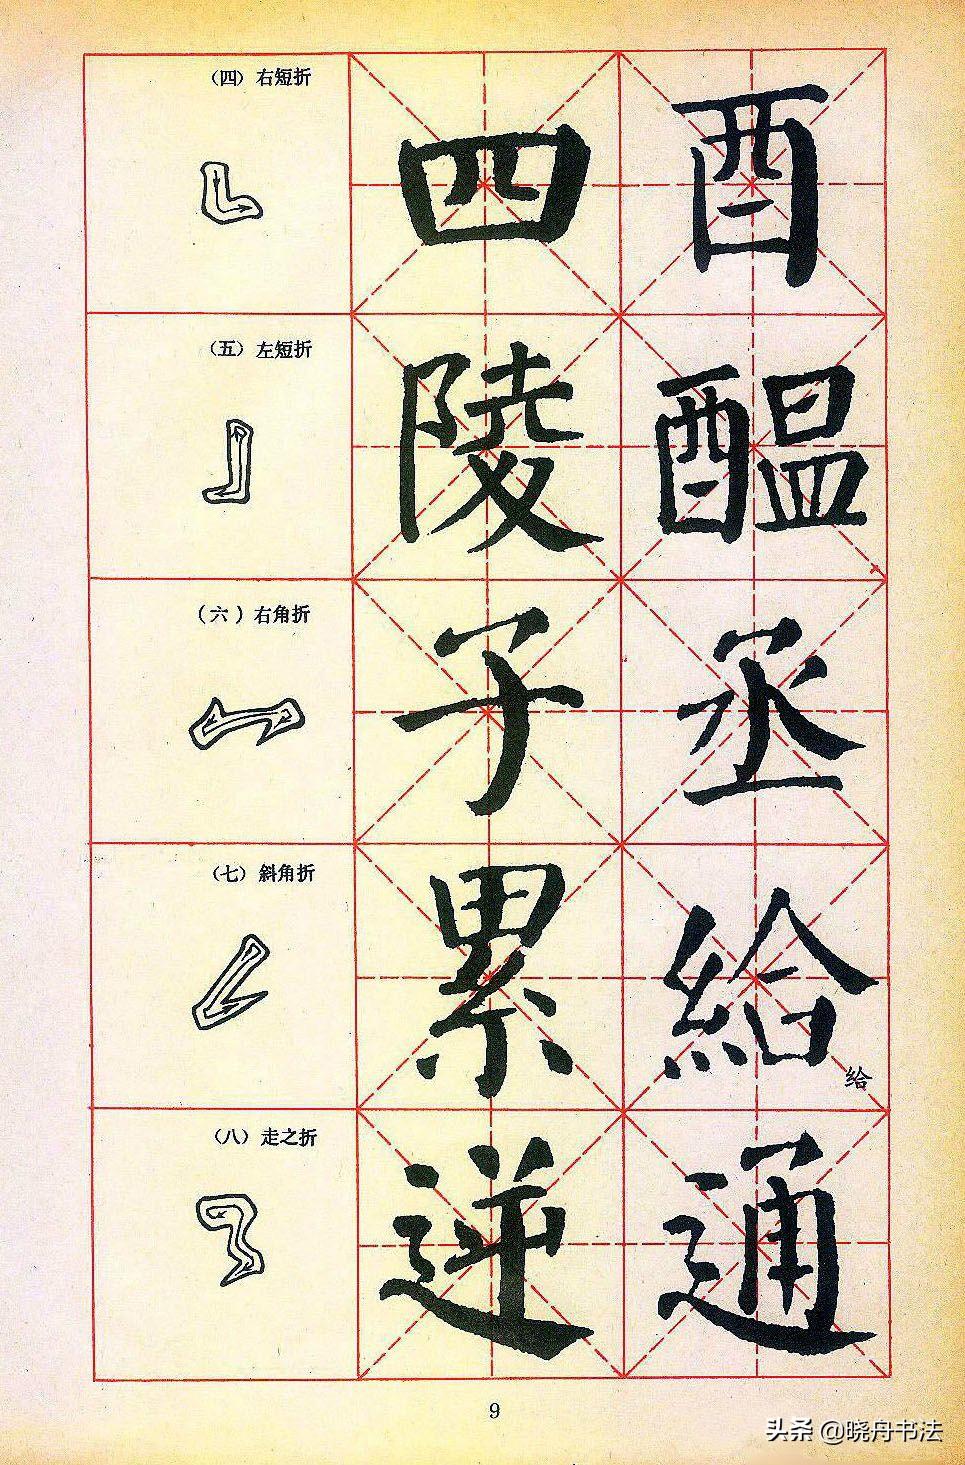 （四）右短折
四 酉
（五）左短折
陵 醖
（六）右角折
子 丞
（七）斜角折
累 給
给
（八）走之折
逆 通
9
头条 @晓舟书法